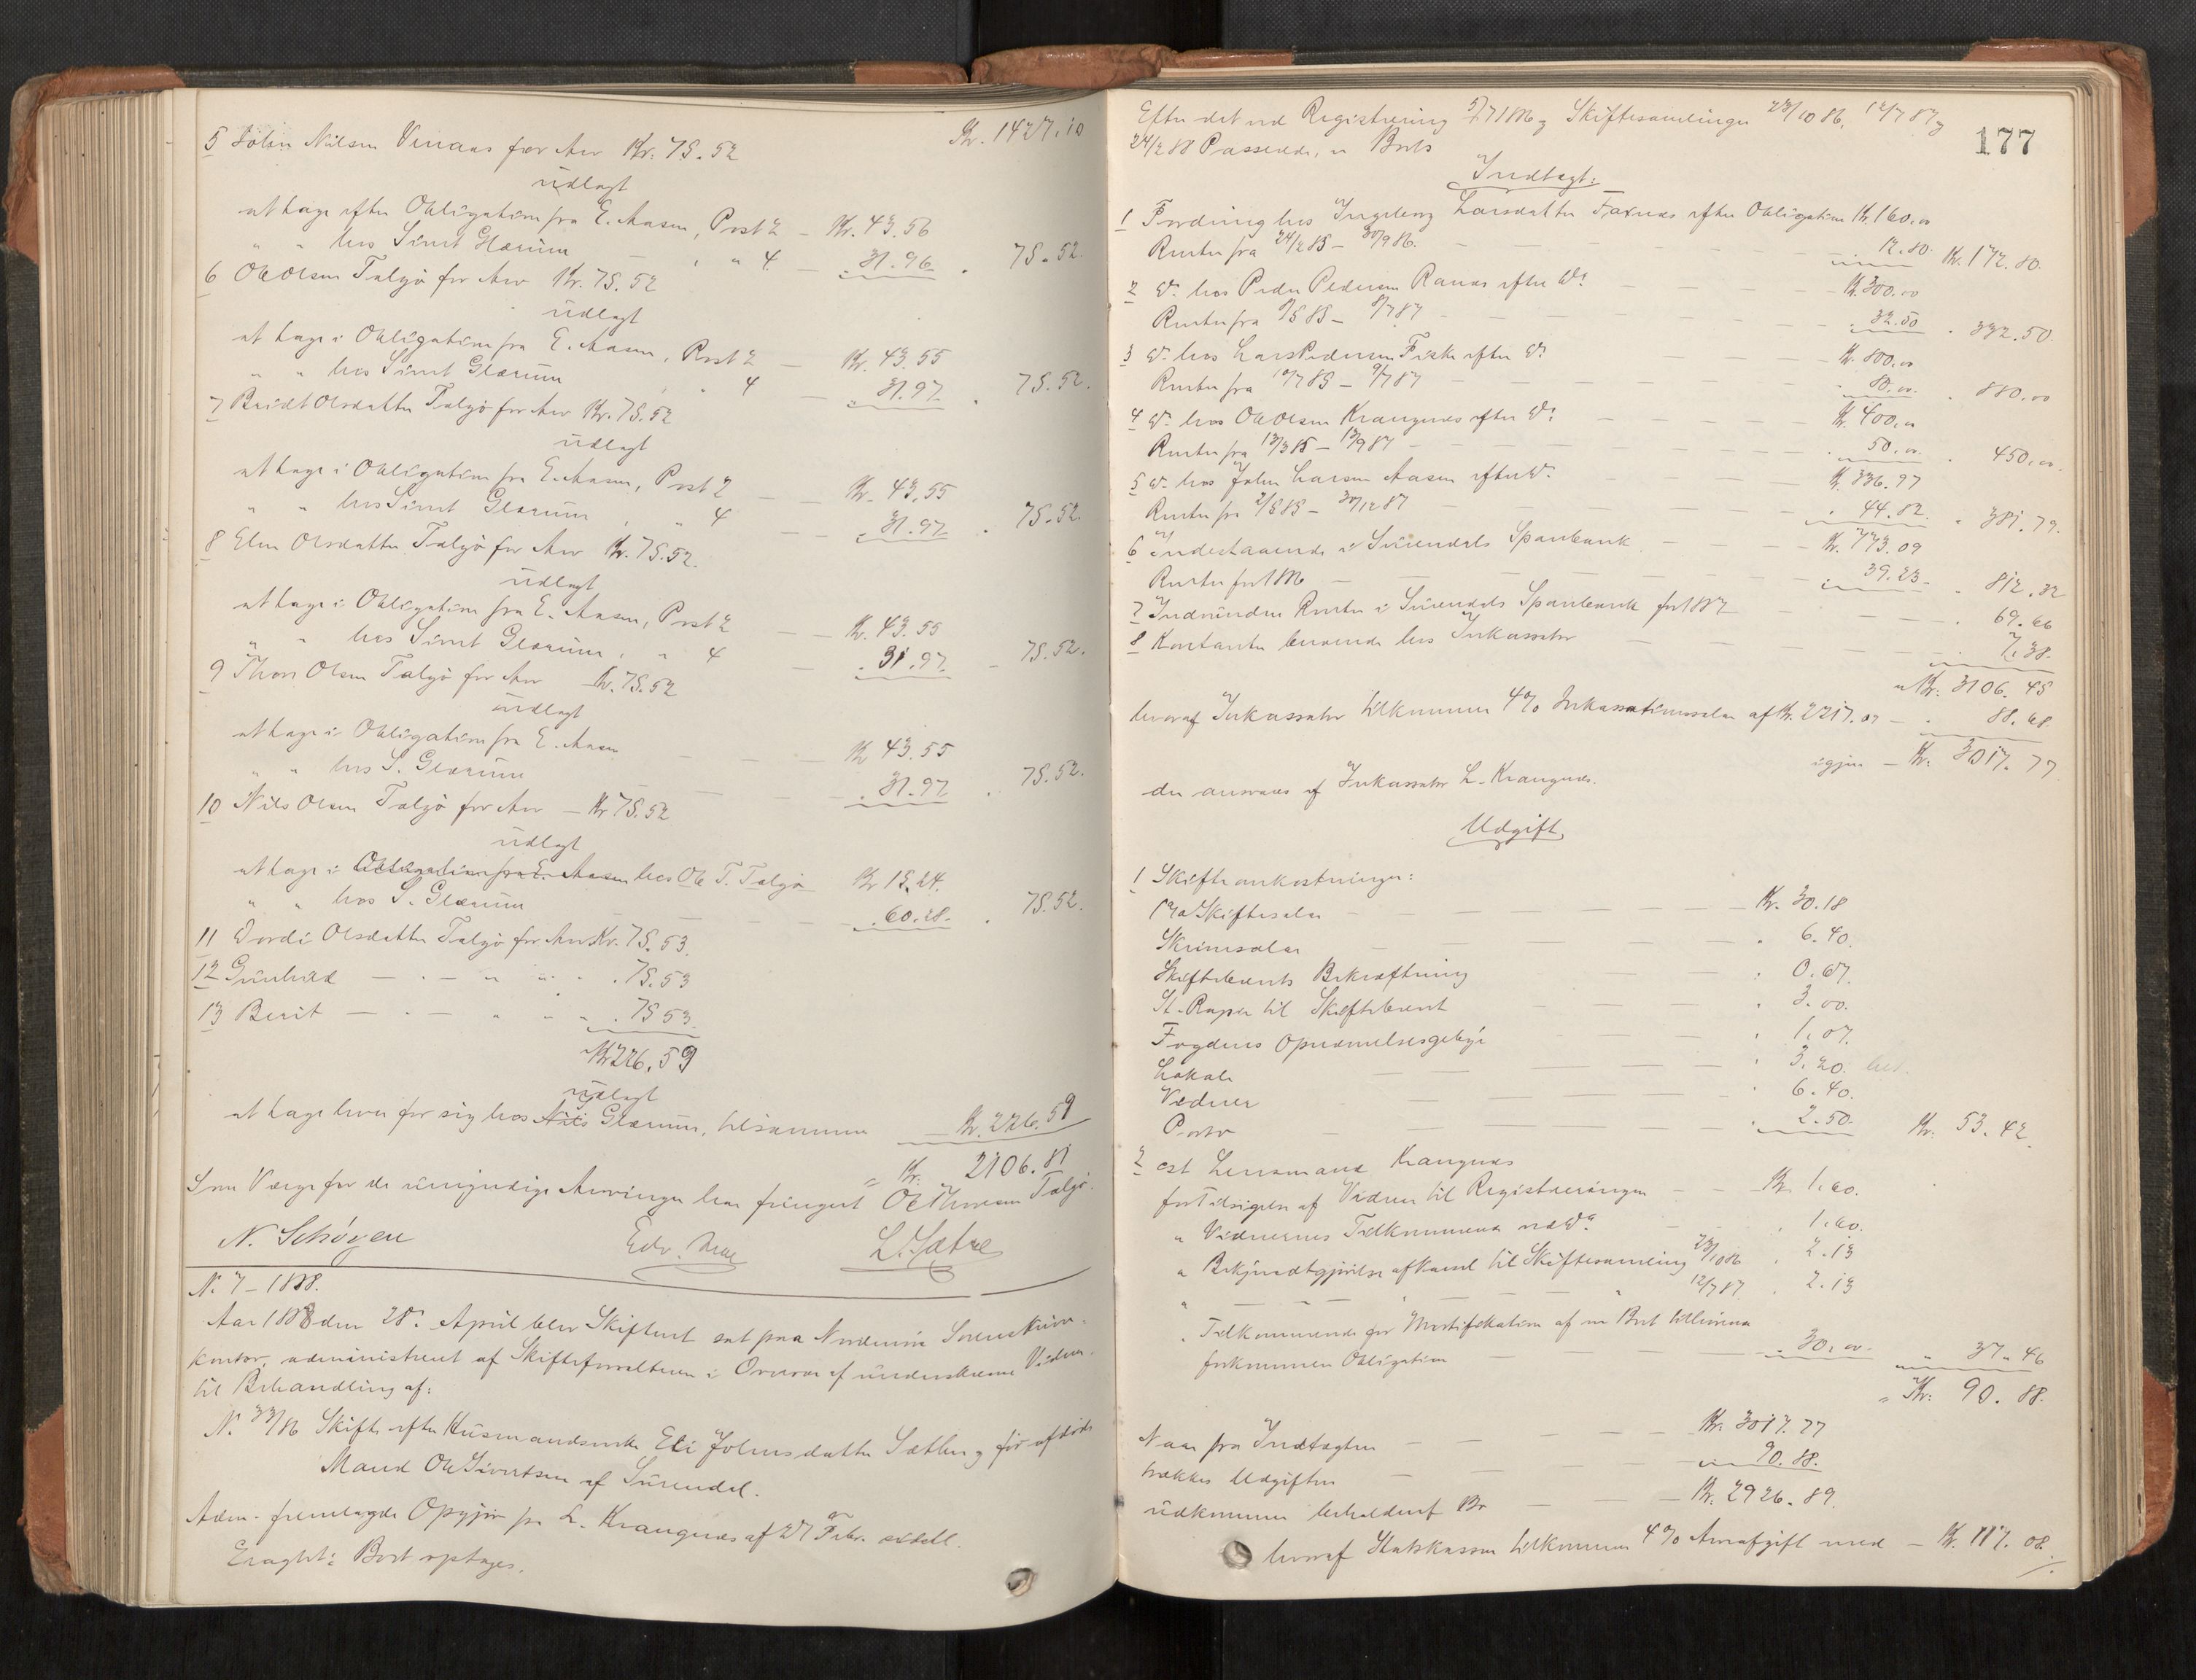 Kr. 1427.10
5 John Nilsen Venaas for Arv Kr. 75.52
udlagt
at tage efter Obligation fra E. Aasen, Post 2 — Kr. 43.56
" " hos Sivert Glærum " " 4 — " 31.96 " 75.52
6 Ole Olsen Talgø for Arv Kr. 75.52
udlagt
at tage i Obligation fra E. Aasen, Post 2 — Kr. 43.55
" " hos Sivert Glærum " " 4 — " 31.97 " 75.52.
7 Olsdatter Talgø for Arv Kr. 75.52
udlagt
at tage i Obligation fra E. Aasen, Post 2 — Kr. 43.55
" " hos Sivert Glærum, " 4 — " 31.97 " 75.52.
8 Elen Olsdatter Talgø for Arv Kr. 75.52.
udlagt
at tage i Obligation fra E. Aasen, Post 2 — Kr. 43.55
" " hos Sivert Glærum, " 4 — " 31.97 - 75.52.
9 Thore Olsen Talgø for Arv Kr. 75.52
udlagt
at tage i Obligation fra E. Aasen — Kr 43.55
" " hos S. Glærum — " 31.97 " 75.52.
10 Nils Olsen Talgø for Arv — Kr 75.52
udlagt
at tage i Obligation fra E. Aasen hos Ole T. Talgø Kr 15.24.
" " hos S. Glærum — " 60.28. " 75.52.
11 Dordi Olsdatter Talgø for Arv Kr. 75.53.
12 Gunhild — " — " " " . 75.53
13 Berit — " — " " " . 75 53.
Kr 226.59
udlagt
at tage hver for sig hos Nils Glærum, tilsammen — Kr. 226.59
= Kr. 2106.81
Som Værge for de umyndige Arvinger har fungeret Ole Thoresen Talgø.
N. Schöyen Edv. L. Sætre
N. 7 - 1888.
Aar 1888 den 28. April blev Skifteret sat paa Nordmøre Sorenskriver-
kontor, administreret af Skifteforvalteren i Overvær af underskrevne Vidner
til Behandling af:
N. 33/86 Skifte efter Husmandsenke Eli Johnsdatter Sætter og før afdøde
Mand Ole Sivertsen af Surendal.
Adm. fremlagde Opgjør fra L. Krangnæs af 27 Febr.
Eragtet: Bort optages.
177
Efter det ved Registrering 5/7 1886 og Skiftesamlinger 23/10 86, 12/7 87 og
24/2 88 Passerede, er Boets
Indtægt:
1 Fordring hos Ingeborg Larsdatter efter Obligation Kr. 160.00
Renter fra 24/2 85 - 30/9 86. — 12.80. Kr. 172.80.
2 Do. hos Peder Pedersen Ranæs efter Do. — Kr. 300.00
Renter fra 9/5 85 - 9/7 87 — 32.50 " 332.50.
3 Do. hos Lars Pedersen Fiske efter Do. — Kr. 800.00
Renter fra 10/7 85 - 9/7 87 — 80.00. " 880.00
4 Do. hos Ole Olsen Krangnæs efter Do. — Kr. 400.00
Renter fra 13/3 85 - 13/9 87 — 50.00. " 450.00.
5 Do. hos John Larsen Aasen efter Do. — Kr. 336.97
Renter fra 2/5 85 - 30/12 87 — " 44.82. " 381.79.
6 Indestaaende i Surendals Sparebank — Kr. 773.09
Renter for 1886 — 39.23 - " 812.32
7 Indvundne Renter i Surendals Sparebank for 1887 — . 69.66
8 Kontanter beroende hos Inkassator — 7.38.
= Kr. 3106.45
hvoraf Inkassator tilkommer 4% Inkassationssalær af Kr. 2217.09 — . 88.68.
igjen — Kr. 3017.77
der ansvares af Inkassator L. Krangnæs.
Udgift
1 Skifteomkostninger:
1% Skiftesalær — Kr. 30.18
Skriversalær — " 6.40.
Skiftebrevets Bekræftning — " 0.67.
St. Papir til Skiftebrevet — " 3.00.
Fogdens Opnævnelsesgebyr — " 1.07.
Lokale — " 3.20.
Vidner — " 6.40.
Porto — " 2.50. Kr. 53.42.
2 cst. Lensmand Krangnæs
for Tilsigelse af Vidner til Registreringen — Kr. 1.60.
" Vidnernes Tilkommende ved Do. . 1.60.
" Bekjendtgjørelse af Varsel til Skiftesamling 23/10 86 . 2.13
" — — " " 12/7 87 . 2.13
. Tilkommende for Mortifikation af en Boet tilhørende
forkommen Obligation — 30.00. " 37.46
= Kr. 90.88.
Naar fra Indtægten — Kr. 3017.77
trækkes Udgiften — 90.88.
udkommer beholdent Bo — Kr. 2926.89.
hvoraf Statskassen tilkommer 4% Arveafgift med — Kr. 117.08.